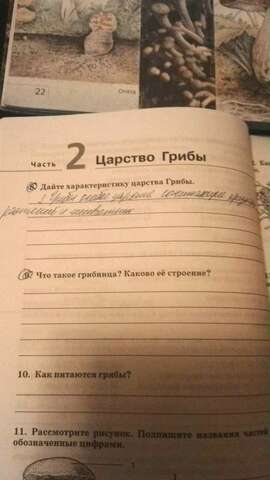 22
Опята
Часть 2 Царство Грибы
8. Дайте характеристику царства Грибы.
Грибы особое царство сочетающее
растений и животных
9. Что такое грибница? Каково её строение?
10. Как питаются грибы?
11. Рассмотрите рисунок. Подпишите названия частей
обозначенные цифрами.
1